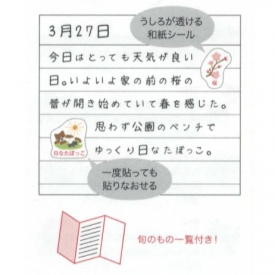 3月27日
うしろが透ける
和紙シール
今日はとっても天気が良い
日。いよいよ家の前の桜の
蕾が開き始めていて春を感じた。
思わず公園のベンチで
ゆっくり日なたぼっこ。
日なたぼっこ
一度貼っても
貼りなおせる
旬のもの一覧付き!